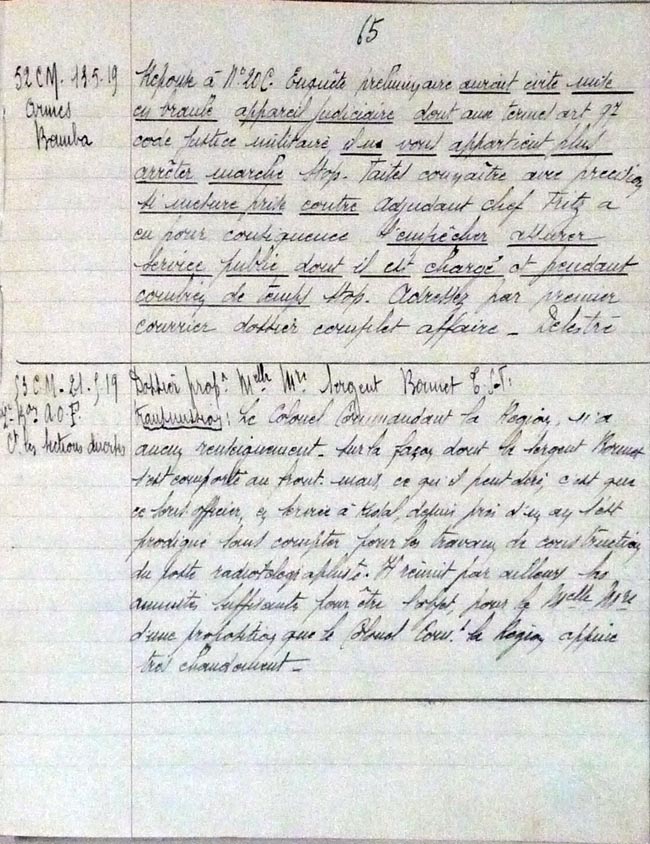 65
52 CM. 13.5.19
Armes
Bamba
Réponse à N° 20 C. Enquête préliminaire aurait évité mise
en branle appareil judiciaire dont aux termes art 97
code justice militaire, il ne vous appartient plus
arrêter marche Stop. Faites connaître avec précision
si mesure prise contre adjudant chef Fritz a
eu pour conséquence l'empêcher assurer
service public dont il est chargé et pendant
combien de temps Stop. Adressez par premier
courrier dossier complet affaire _ Delestre
53 C.M. 21.5.19
A.O.F.
Ct les sections diverses
Dossier prop° Melle Mre Sergent Bonnet T.S.F.
Transmission: Le Colonel Commandant la Région, n'a
aucun renseignement sur la façon dont le sergent Bonnet
s'est comporté au front. mais ce qu'il peut dire, c'est que
ce sous officier, en service à Kidal, depuis près d'un an s'est
prodigué sans compter pour les travaux de construction
du poste radiotélégraphiste. Il réunit par ailleurs les
annuités suffisantes pour être pour la Melle Mre
d'une proposition que le Colonel Comt la Région appuie
très chaudement _